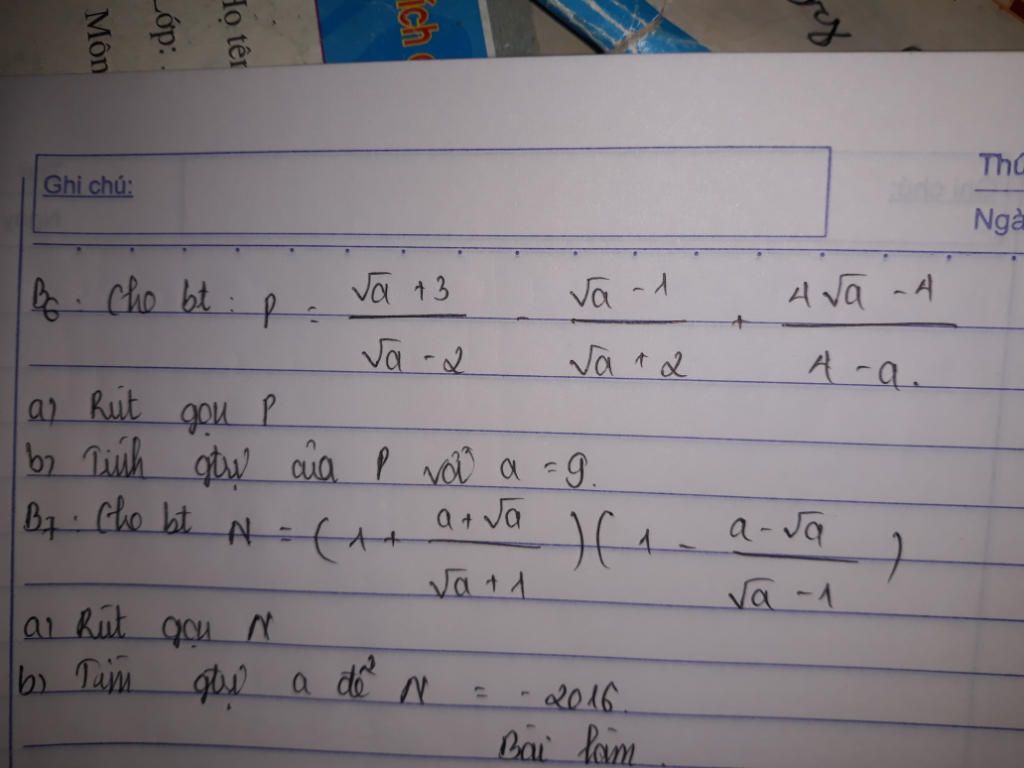 Họ tên
Lớp:
Môn
ích
Ghi chú:
Thứ
Ngà
B6. Cho bt: P = \frac{√a + 3}{√a - 2} - \frac{√a - 1}{√a + 2} + \frac{4√a - 4}{4 - a}.
a) Rút gọn P
b) Tính gtrị của P với a = 9.
B7. Cho bt N = (1 + \frac{a + √a}{√a + 1})(1 - \frac{a - √a}{√a - 1})
a) Rút gọn N
b) Tìm gtrị a để N = -2016.
Bài làm.